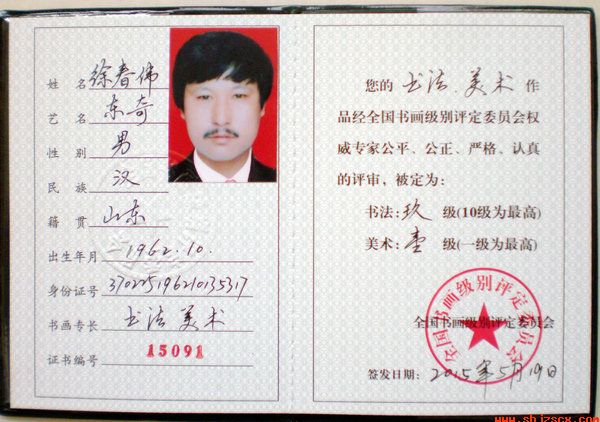 姓 名 徐春伟
艺 名 东奇
性 别 男
民 族 汉
籍 贯 山东
出生年月 1962.10.
身份证号 370225196210135317
书画专长 书法 美术
证书编号 15091
您的 书法.美术 作
品经全国书画级别评定委员会权
威专家公平、公正、严格、认真
的评审，被定为：
书法：玖 级(10级为最高)
美术：壹 级(一级为最高)
全国书画级别评定委员会
全国书画级别评定委员会
签发日期：2015年5月19日
www.shjzscx.com